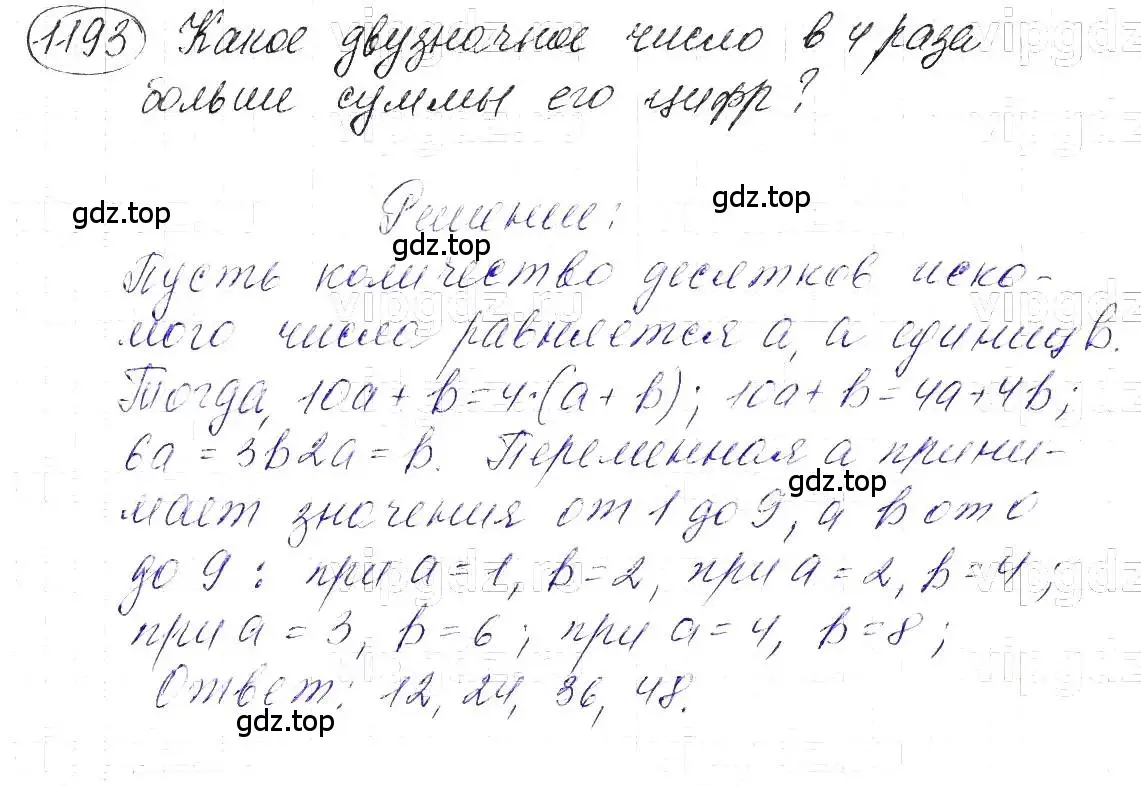 1193 Какое двузначное число в 4 раза
больше суммы его цифр?
Решение:
gdz.top
gdz.top
gdz.top
Пусть количество десятков иско-
мого число равняется a, а единиц b.
Тогда, 10a + b = 4·(a + b); 10a + b = 4a + 4b;
6a = 3b 2a = b. Переменная a прини-
gdz.top
мает значения от 1 до 9, а b от 0
до 9: при a = 1, b = 2, при a = 2, b = 4;
при a = 3, b = 6; при a = 4, b = 8;
Ответ: 12, 24, 36, 48.
gdz.top